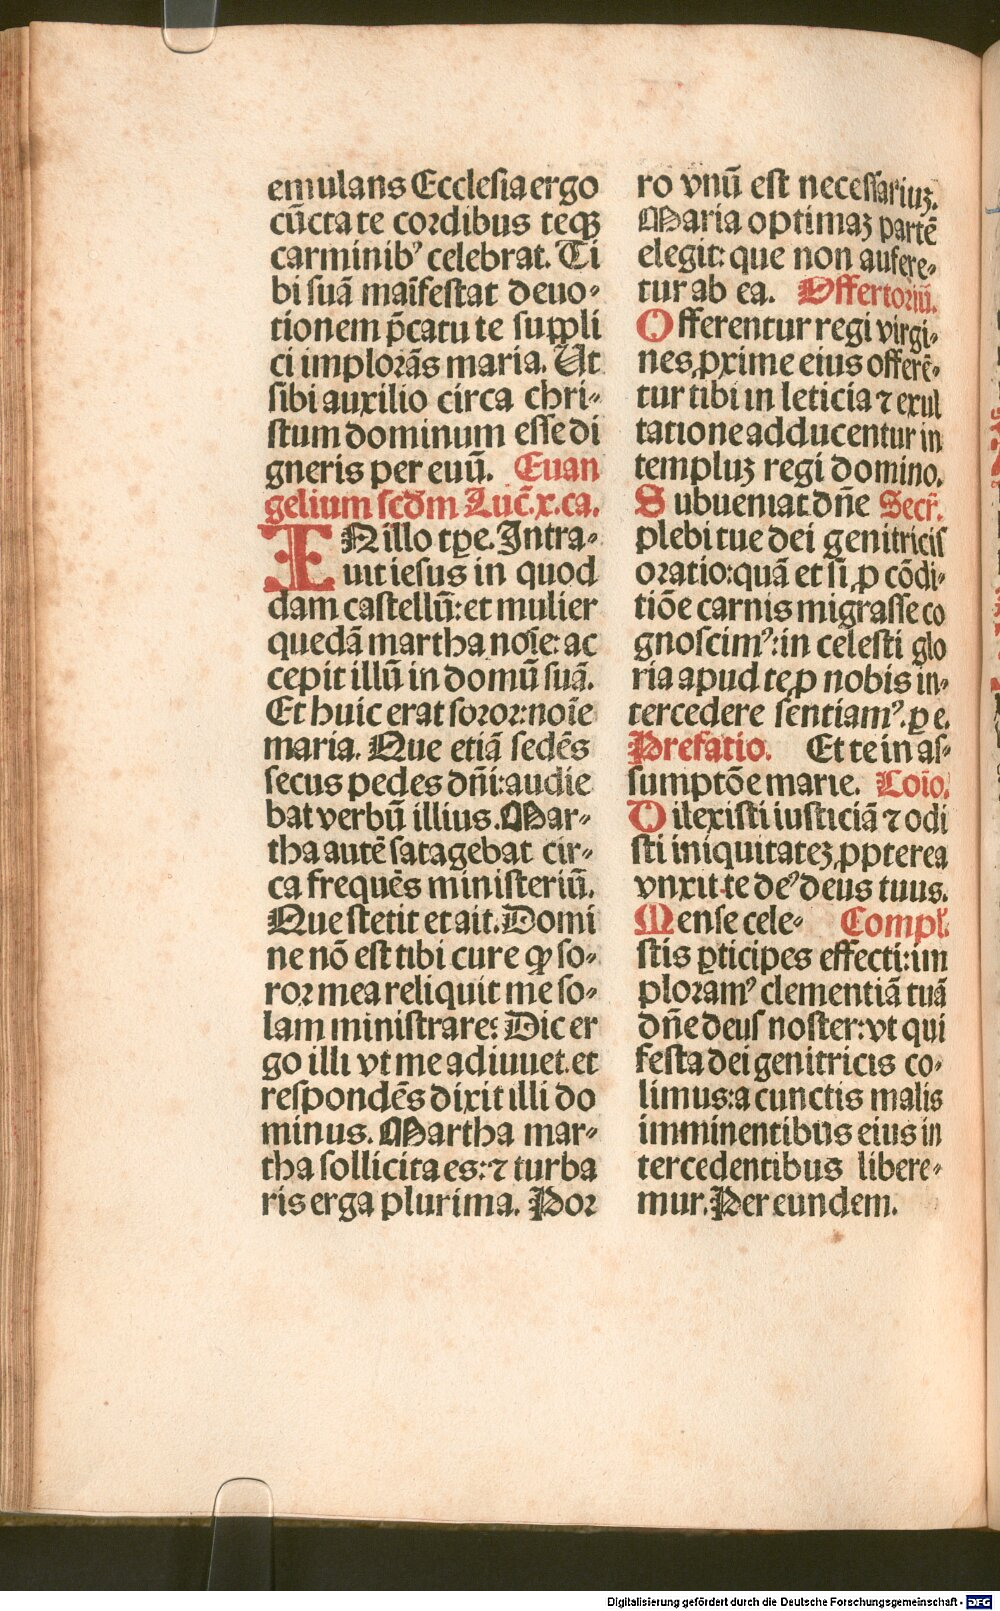 emulans Ecclesia ergo
cūcta te cordibus teqꝫ
carminibꝰ celebrat. Ti
bi suā maīfestat deuo⸗
tionem p̄catu te suppli
ci implorās maria. Ut
sibi auxilio circa chri⸗
stum dominum esse di
gneris per euū. Euan
gelium scd̄m Luc̄. x. ca.
IN illo tꝑe. Intra⸗
uit iesus in quod
dam castellū: et mulier
quedā martha noīe: ac
cepit illū in domū suā.
Et huic erat soror: noīe
maria. Que etiā sedēs
secus pedes dn̄i: audie
bat verbū illius. Mar⸗
tha autē satagebat cir⸗
ca frequēs ministeriū.
Que stetit et ait. Domi
ne nō est tibi cure ꝙ so⸗
ror mea reliquit me so⸗
lam ministrare? Dic er
go illi vt me adiuuet. et
respondēs dixit illi do
minus. Martha mar⸗
tha sollicita es: ⁊ turba
ris erga plurima. Por
ro vnū est necessariuꝫ.
Maria optimaꝫ partē
elegit: que non aufere⸗
tur ab ea. Offertoriū.
Offerentur regi virgi⸗
nes ꝓxime eius offerē⸗
tur tibi in leticia ⁊ exul
tatione adducentur in
templuꝫ regi domino.
Subueniat dn̄e Secr̄.
plebi tue dei genitricis
oratio: quā et si ꝓ cōdi⸗
tiōe carnis migrasse co
gnoscimꝰ: in celesti glo
ria apud te ꝓ nobis in⸗
tercedere sentiamꝰ. ꝑ e.
Prefatio. Et te in as⸗
sumptōe marie. Coīo.
Dilexisti iusticiā ⁊ odi
sti iniquitateꝫ ꝓpterea
vnxit te deꝰ deus tuus.
Mense cele⸗ Compl̄.
stis ꝑticipes effecti: im
ploramꝰ clementiā tuā
dn̄e deus noster: vt qui
festa dei genitricis co⸗
limus: a cunctis malis
imminentibus eius in
tercedentibus libere⸗
mur. Per eundem.
Digitalisierung gefördert durch die Deutsche Forschungsgemeinschaft - DFG